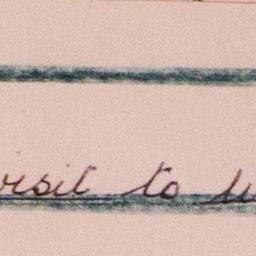 visit to